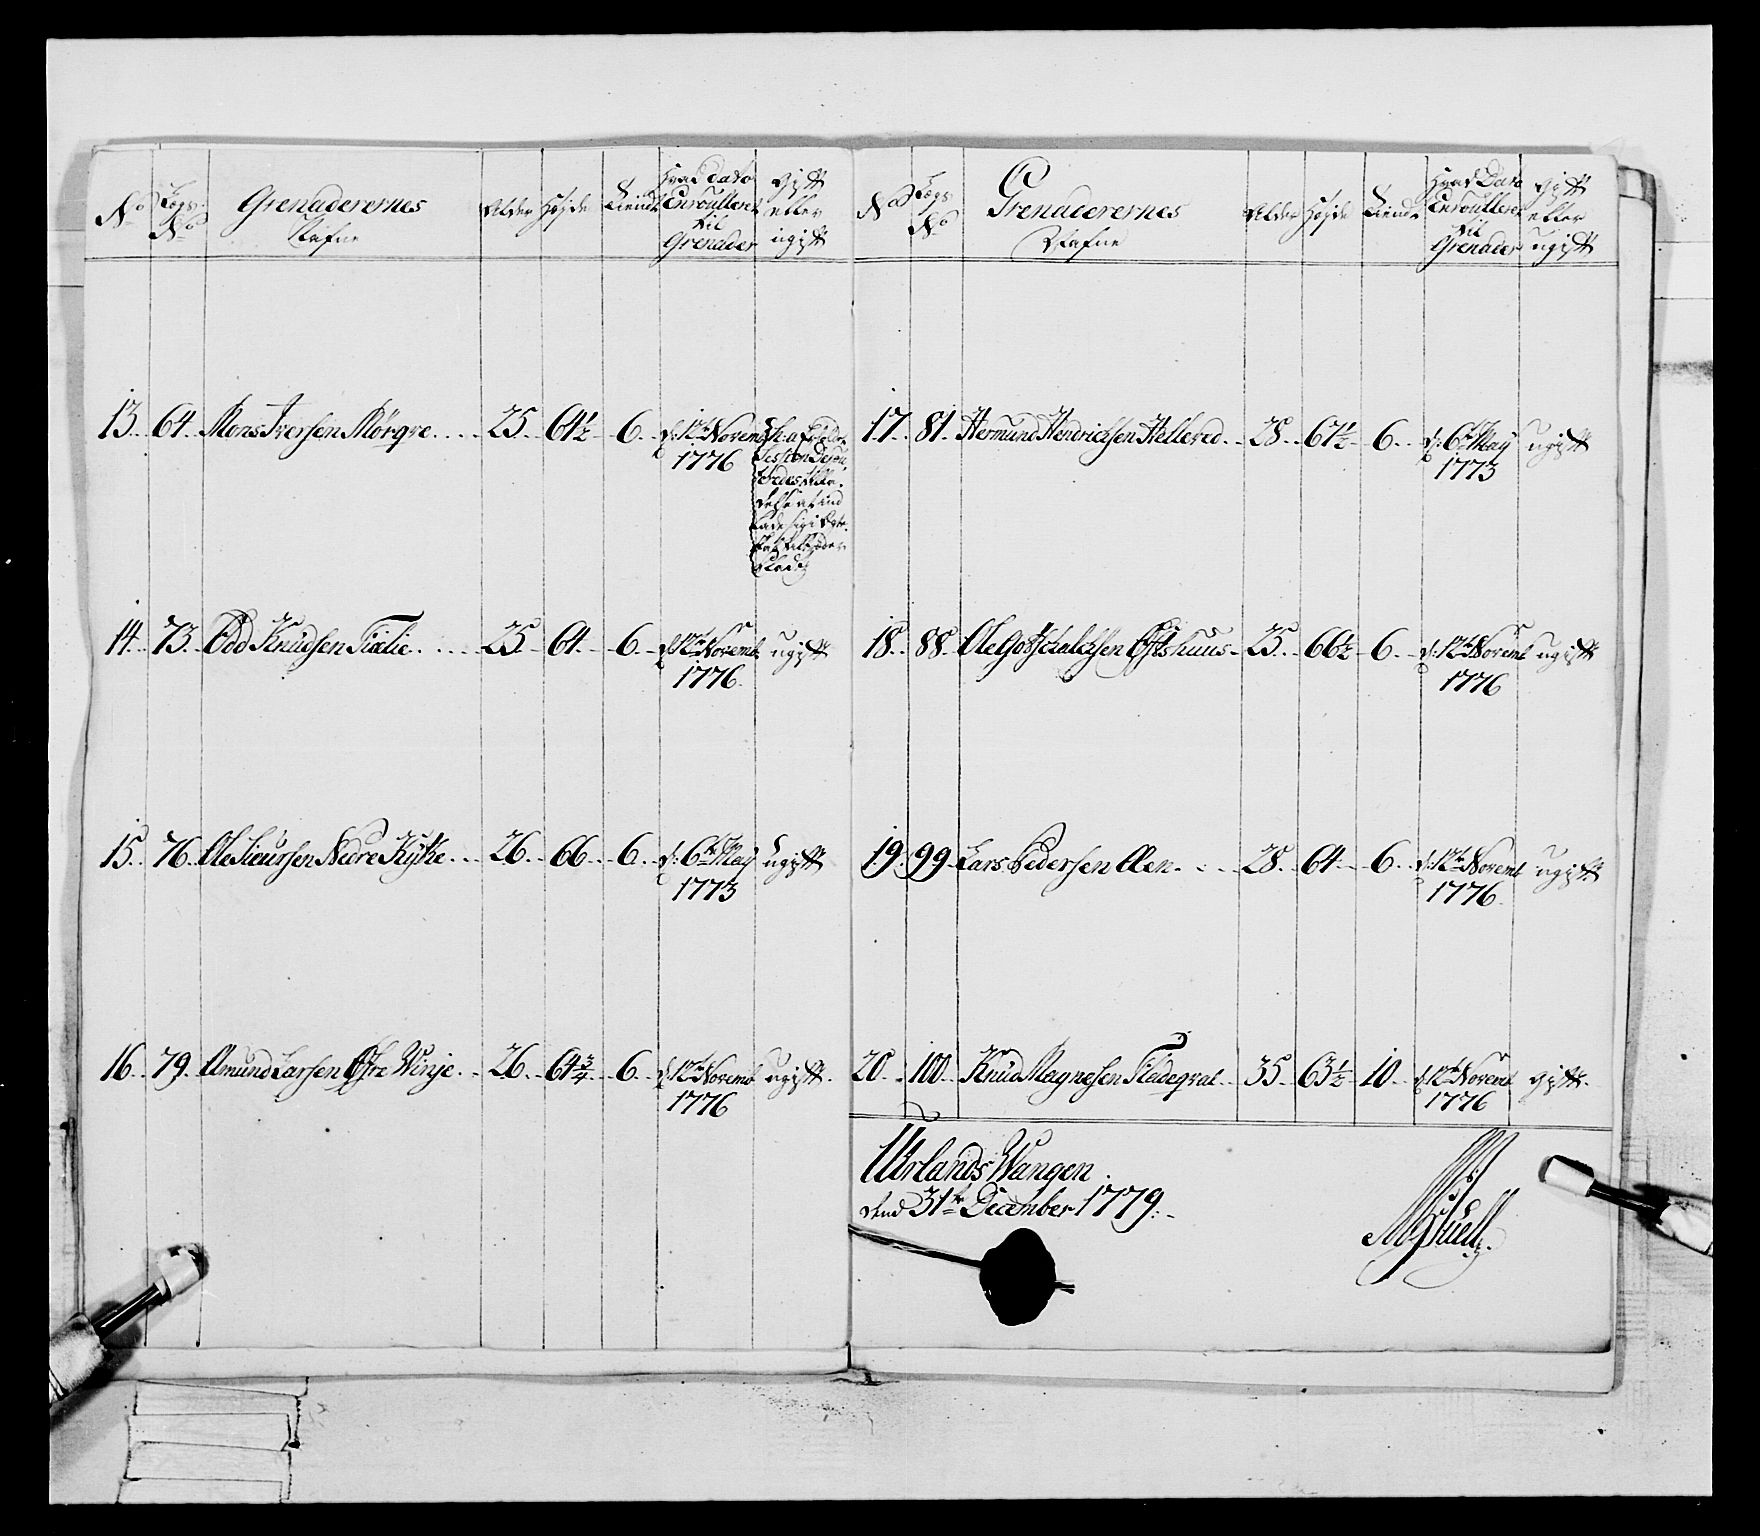 No Lægs No Grenaderernes Nafne Alder Højde Tiendt Hvad dato Enroulleret til Grenader gift eller ugift
13. 64. Mons Iversen Mørqve. 25. 64½ 6. d: 12te Novemb 1776
14. 73. Odd Knudsen Fixlie. 25. 64. 6. d: 12te Novemb 1776. ugift
15. 76. Ole Sieursen Nedre Kytke. 26. 66. 6. d: 6te May 1773 ugift
16. 79. Amund Larsen Øfre Winje. 26. 64¾ 6. d: 12te Novemb 1776 ugift.
No Lægs No Grenaderernes Nafne Alder Højde Tiendt Hvad Dato Enroulleret til Grenader gift eller ugift
17. 81. Hermund Hendrichsen Hellered. 28. 67½ 6. d: 6te May 1773 ugift
18. 88. Ole Gottschalchsen Øfshuus. 25. 66½ 6. d: 12te Novemb 1776 ugift
19. 99. Lars Pedersen Aen. 28. 64. 6. d: 12te Novemb 1776. ugift
20. 100. Knud Magnesen Fladegral. 35. 63½ 10. d: 12te Novemb 1776 gift.
Urlands Wangen.
dend 31te December 1779.